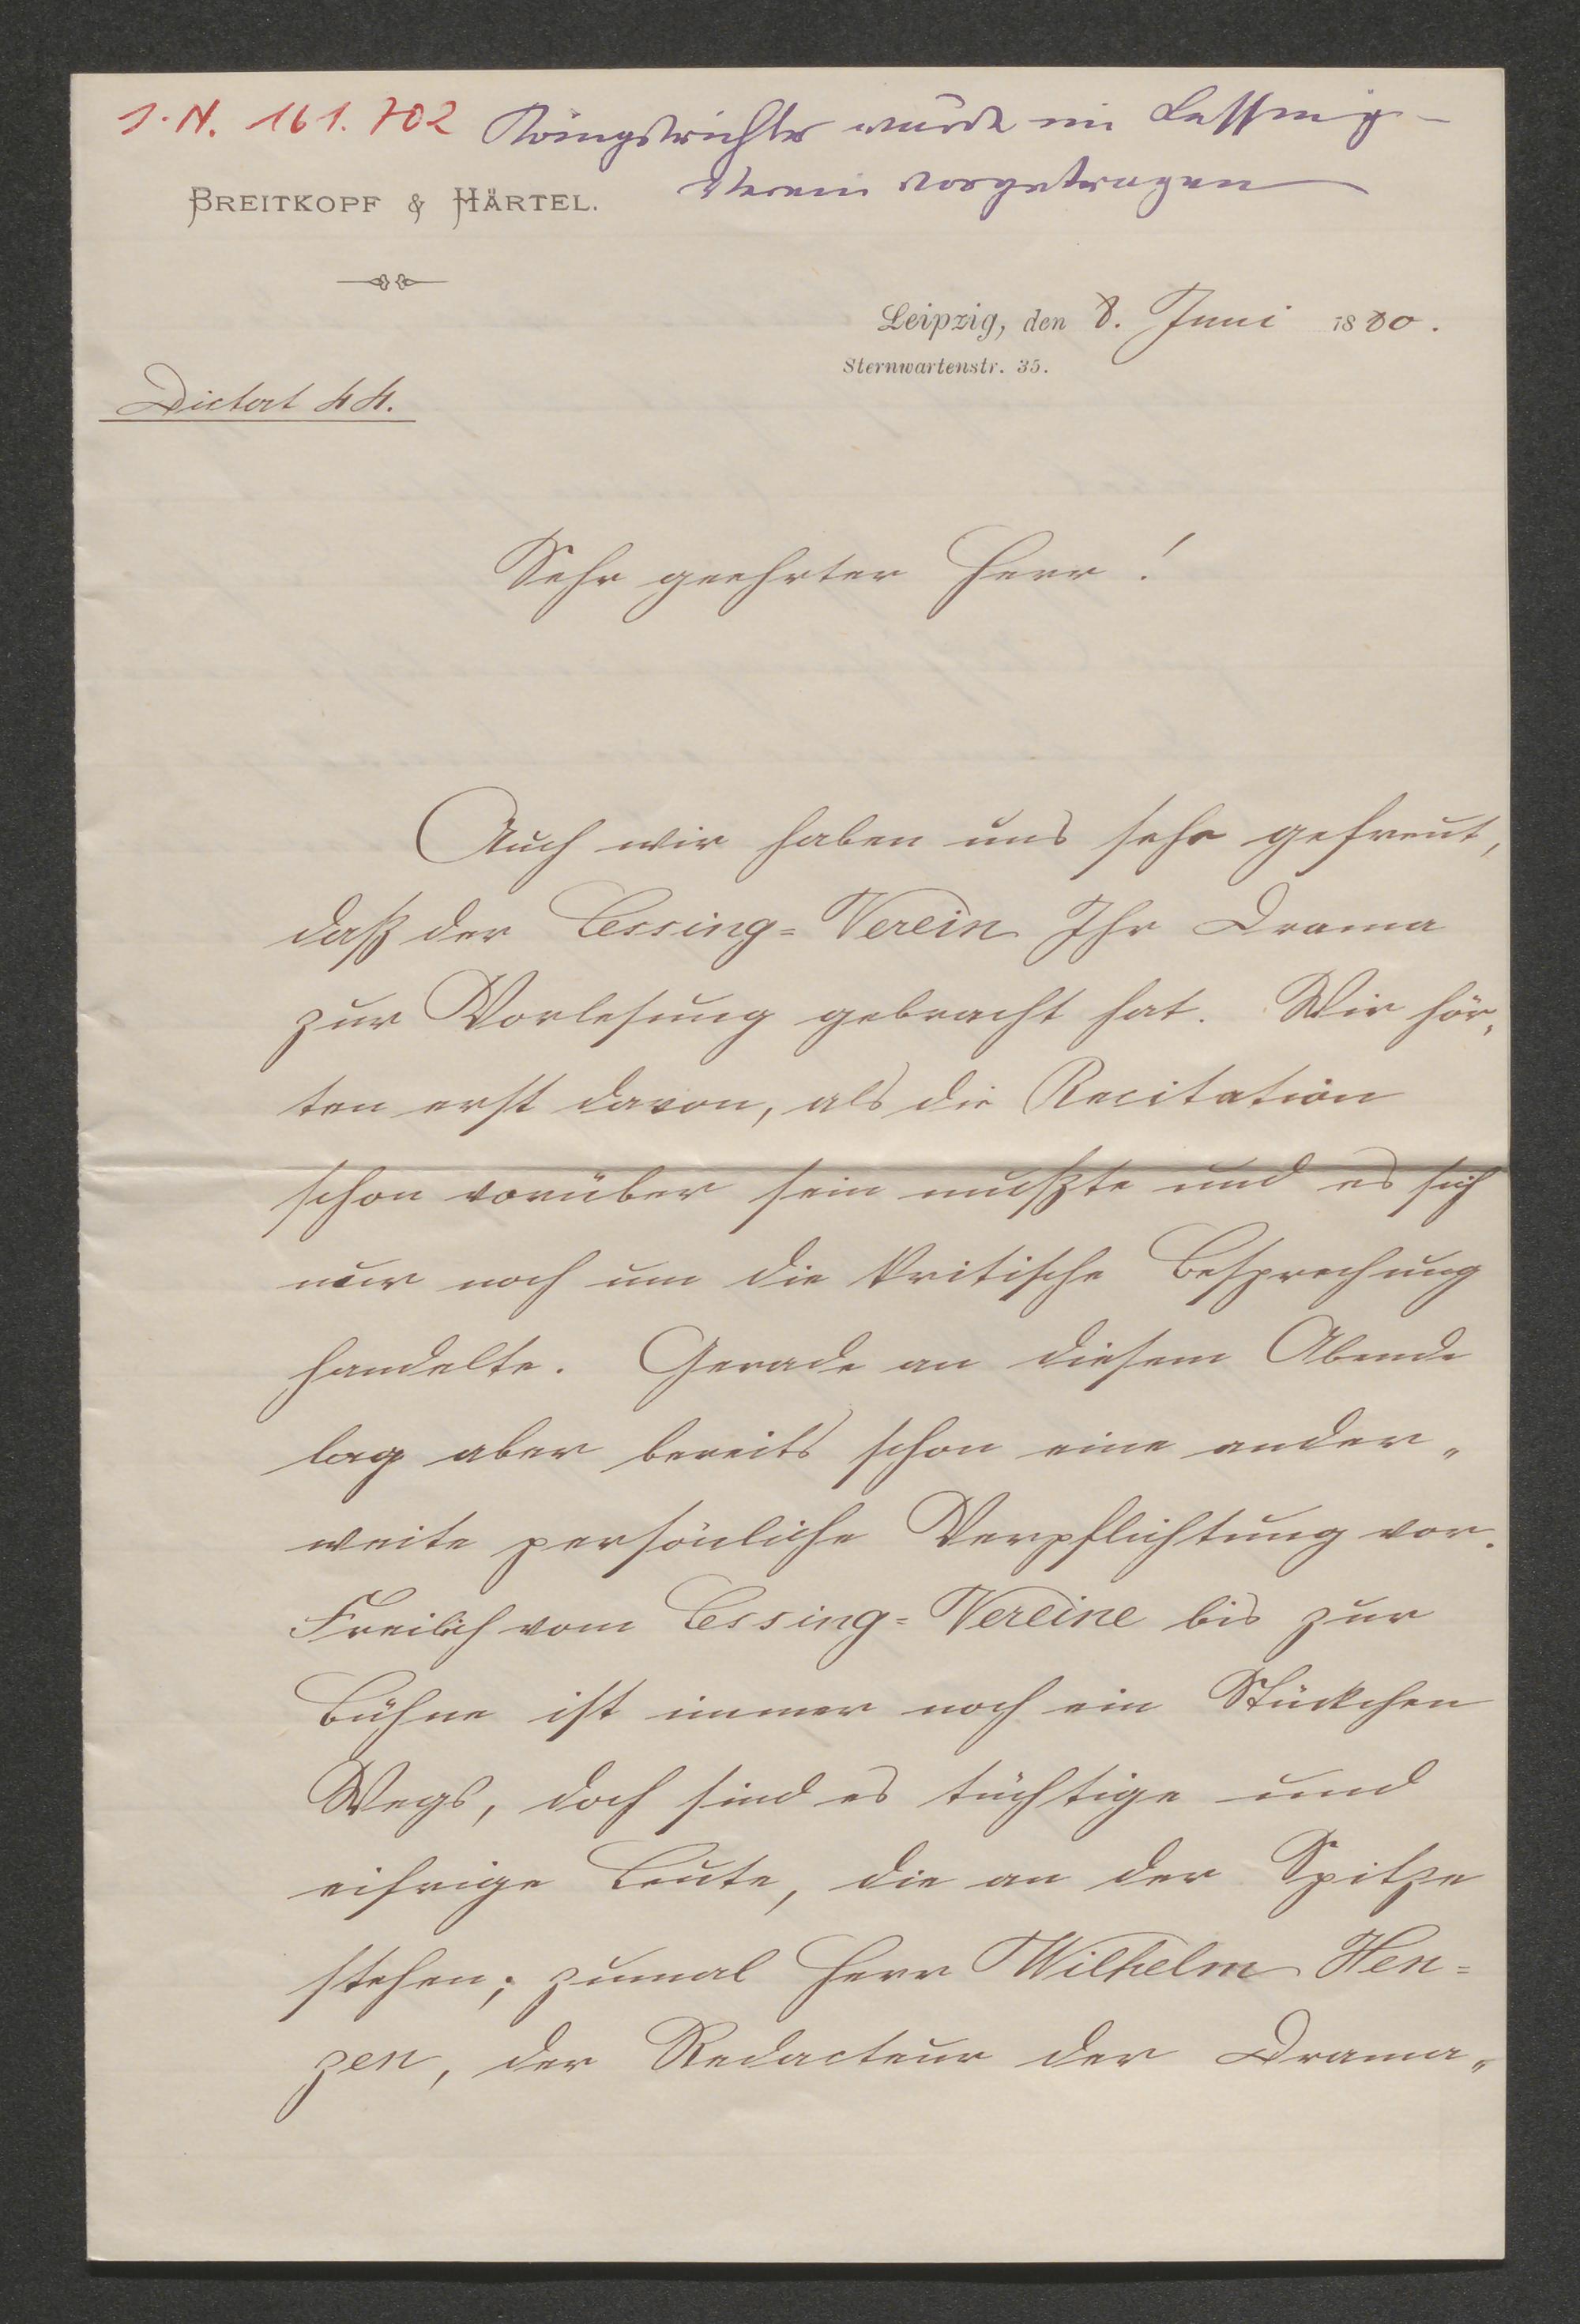 I. N. 161.702 Königsrichter wurde im Lessing-
Verein vorgetragen
BREITKOPF & HÄRTEL.
Leipzig, den 8. Juni 1880.
Sternwartenstr. 35.
Dictat 44.
Sehr geehrter Herr!
Auch wir haben uns sehr gefreut,
daß der Lessing=Verein Ihr Drama
zur Vorlesung gebracht hat. Wir hör„
ten erst davon, als die Recitation
schon vorüber sein mußte und es sich
nur noch um die kritische Besprechung
handelte. Gerade an diesem Abende
lag aber bereits schon eine ander„
weite persönliche Verpflichtung vor.
Freilich vom Lessing=Vereine bis zur
Bühne ist immer noch ein Stückchen
Wegs, doch sind es tüchtige und
eifrige Leute, die an der Spitze
stehen; zumal Herr Wilhelm Hen=
zen, der Redacteur der Drama„